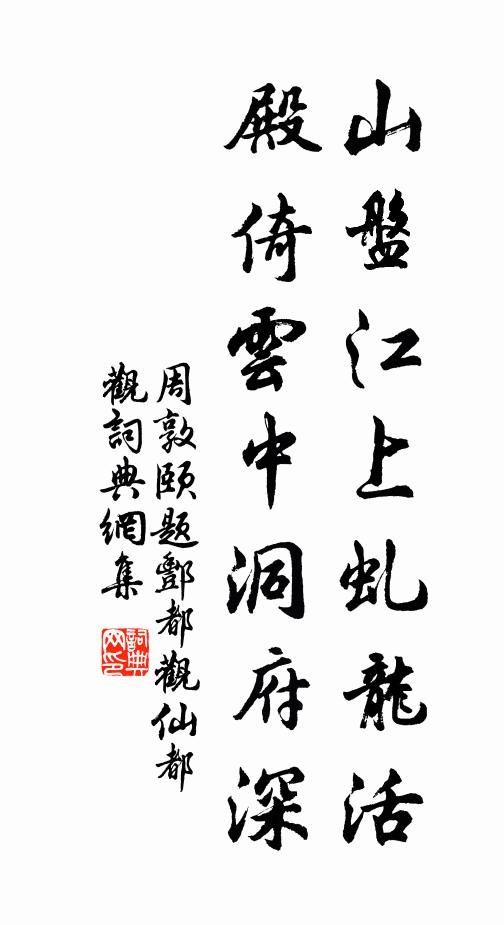 山盤江上虬龍活
殿倚雲中洞府深
周敦頤題酆都觀仙都
觀詞典網集
詞典
网印